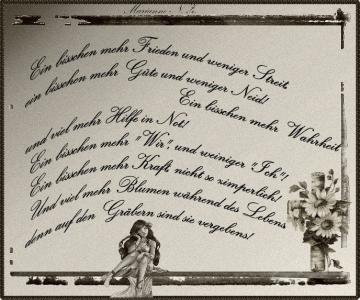 Marianne N.
Ein bisschen mehr Frieden und weniger Streit,
ein bisschen mehr Güte und weniger Neid!
Ein bisschen mehr Wahrheit
und viel mehr Hilfe in Not!
Ein bisschen mehr "Wir" und weiniger "Ich"!
Ein bisschen mehr Kraft nicht so zimperlich!
Und viel mehr Blumen während des Lebens
denn auf den Gräbern sind sie vergebens!